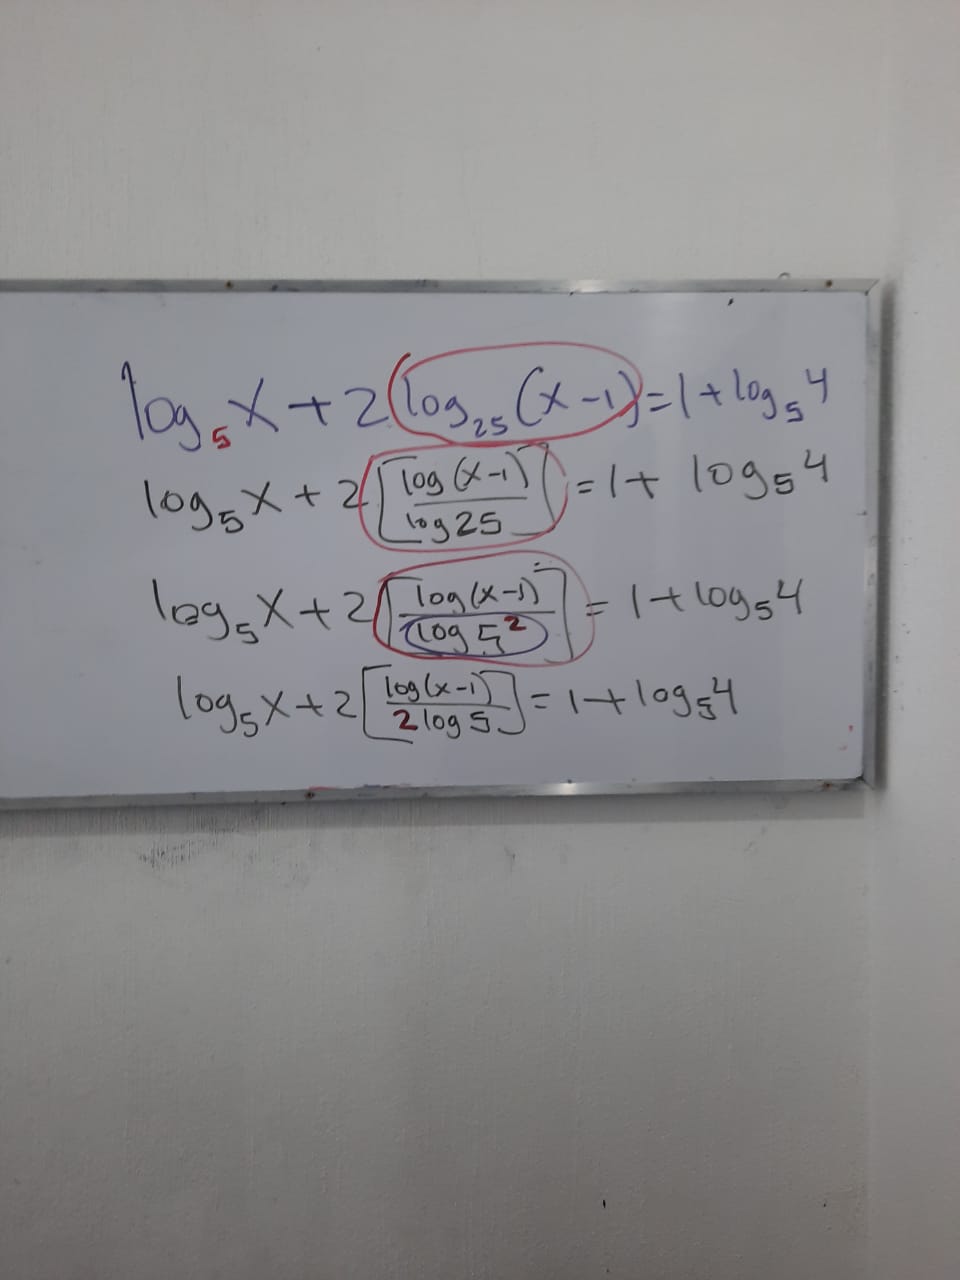 log₅x + 2 log₂₅(x-1) = 1 + log₅4
log₅x + 2[log(x-1)/log 25] = 1 + log₅4
log₅x + 2[log(x-1)/log 5²] = 1 + log₅4
log₅x + 2[log(x-1)/2 log 5] = 1 + log₅4